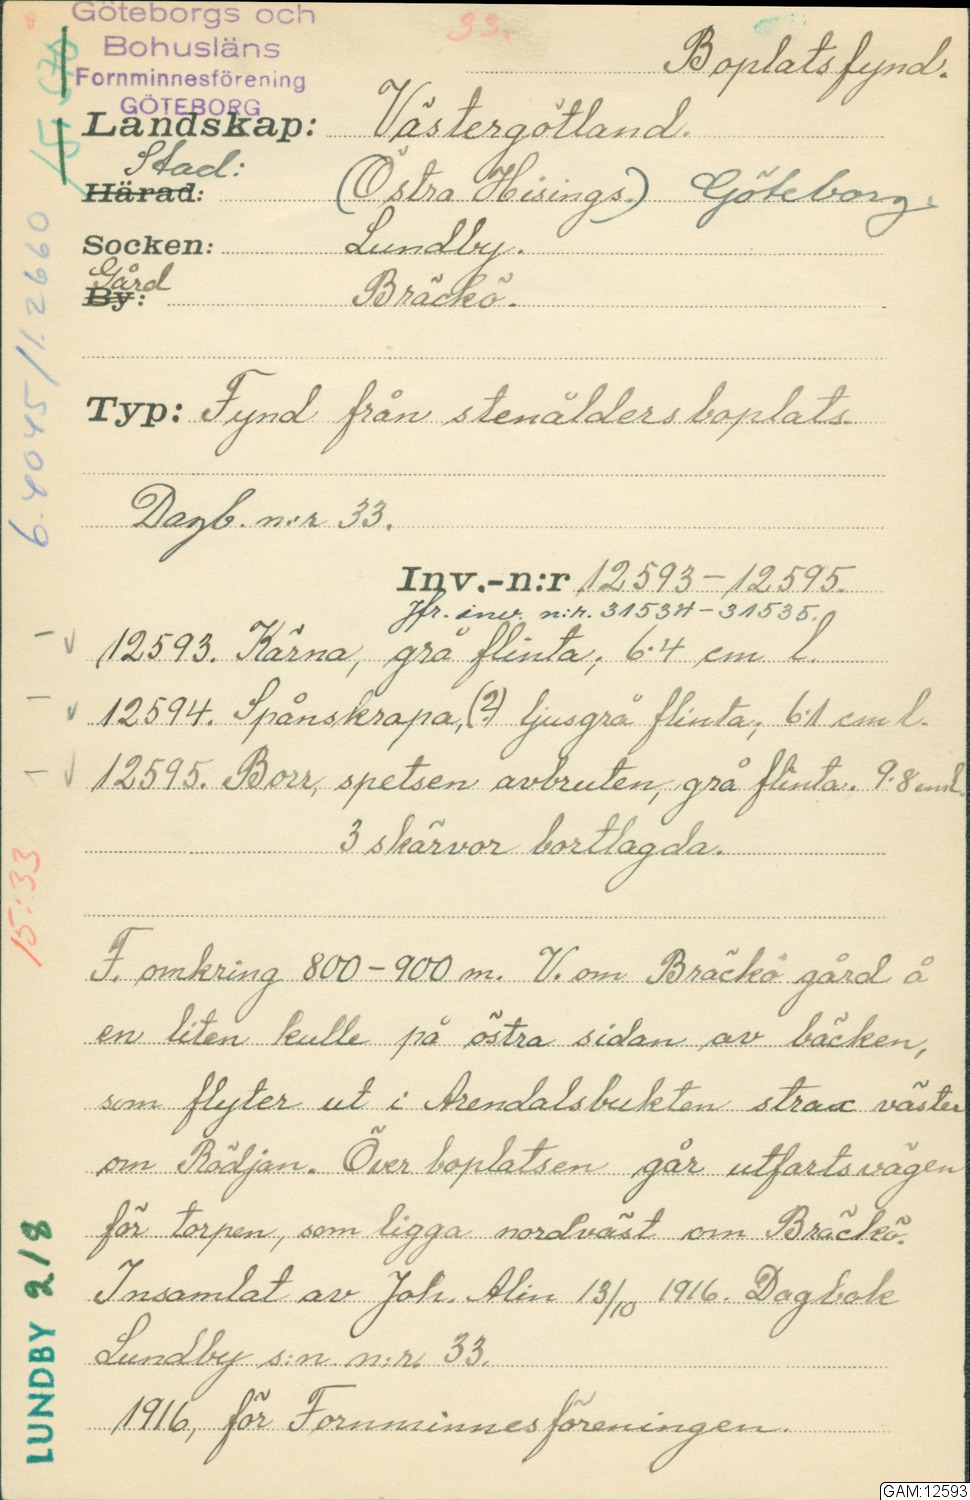 Göteborgs och
Bohusläns
Fornminnesförening
GÖTEBORG
33.
Boplatsfynd.
Landskap: Västergötland.
Stad:
Härad: (Östra Hisings.) Göteborg.
Socken: Lundby.
Gård
By: Bräckö.
Typ: Fynd från stenåldersboplats.
Dagb. n:r 33.
Inv.-n:r 12593-12595.
Jfr. inv. n:r. 31534-31535.
12593. Kärna, grå flinta; 6.4 cm l.
12594. Spånskrapa, (?) ljusgrå flinta; 6.1 cm l.
12595. Borr, spetsen avbruten, grå flinta. 9.8 cm l.
3 skärvor bortlagda.
F. omkring 800-900 m. V. om Bräckö gård å
en liten kulle på östra sidan av bäcken,
som flyter ut i Arendalsbukten strax väster
om Rödjan. Över boplatsen går utfartsvägen
för torpen, som ligga nordväst om Bräckö.
Insamlat av Joh. Alin 13/10 1916. Dagbok
Lundby s:n n:r. 33.
1916, för Fornminnesföreningen.
6.4045/1.2660
15:33
LUNDBY 2/8
GAM:12593